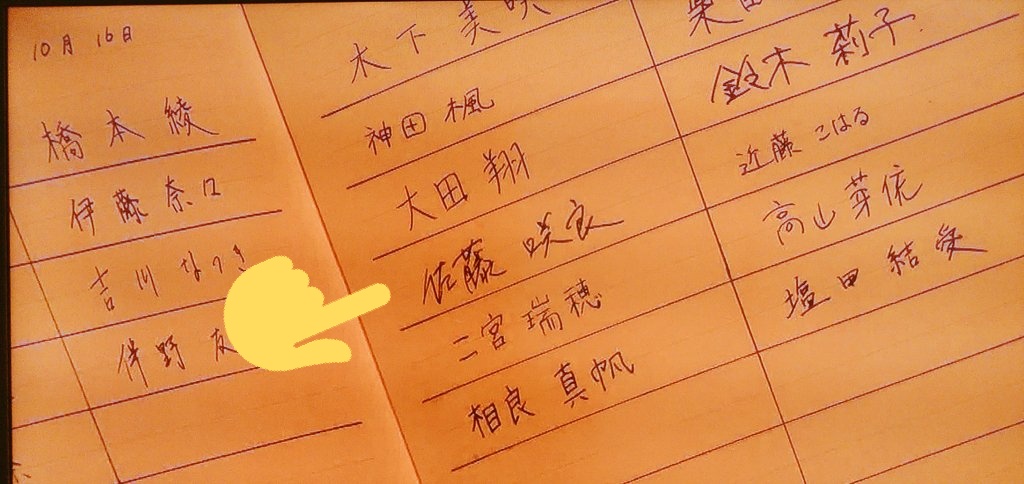 10月 16日
橋本 綾
伊藤 奈口
吉川 なつき
伴野
木下 美咲
神田 楓
大田 翔
佐藤 咲良
二宮 瑞穂
相良 真帆
柴田
鈴木 莉子
近藤 こはる
高山 芽依
塩田 結愛